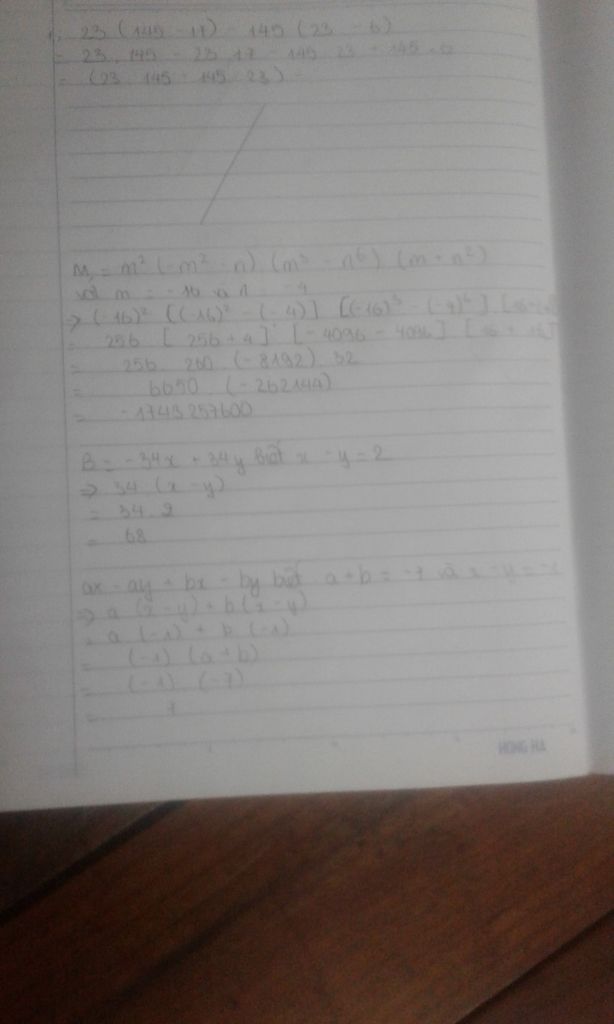 23 (145 - 17) - 145 (23 - 6)
= 23 . 145 - 23 . 17 - 145 . 23 + 145 . 6
= (23 . 145 - 145 . 23) -
M = m² (-m² - n) (m³ - n⁶) (m + n²)
với m = -16 và n = -4
⇒ (-16)² [(-16)² - (-4)] [(-16)³ - (-4)⁶]
= 256 [256 + 4] [-4096 - 4096] [16 + 16]
= 256 . 260 . (-8192) . 32
= 6650 . (-262144)
= -1743257600
B = -34x + 34y biết x - y = 2
⇒ 34 (x - y)
= 34 . 2
= 68
ax - ay + bx - by biết a + b = -7 và x - y = -1
⇒ a (x - y) + b (x - y)
= a (-1) + b (-1)
= (-1) (a + b)
= (-1) (-7)
= 7
HONG HA